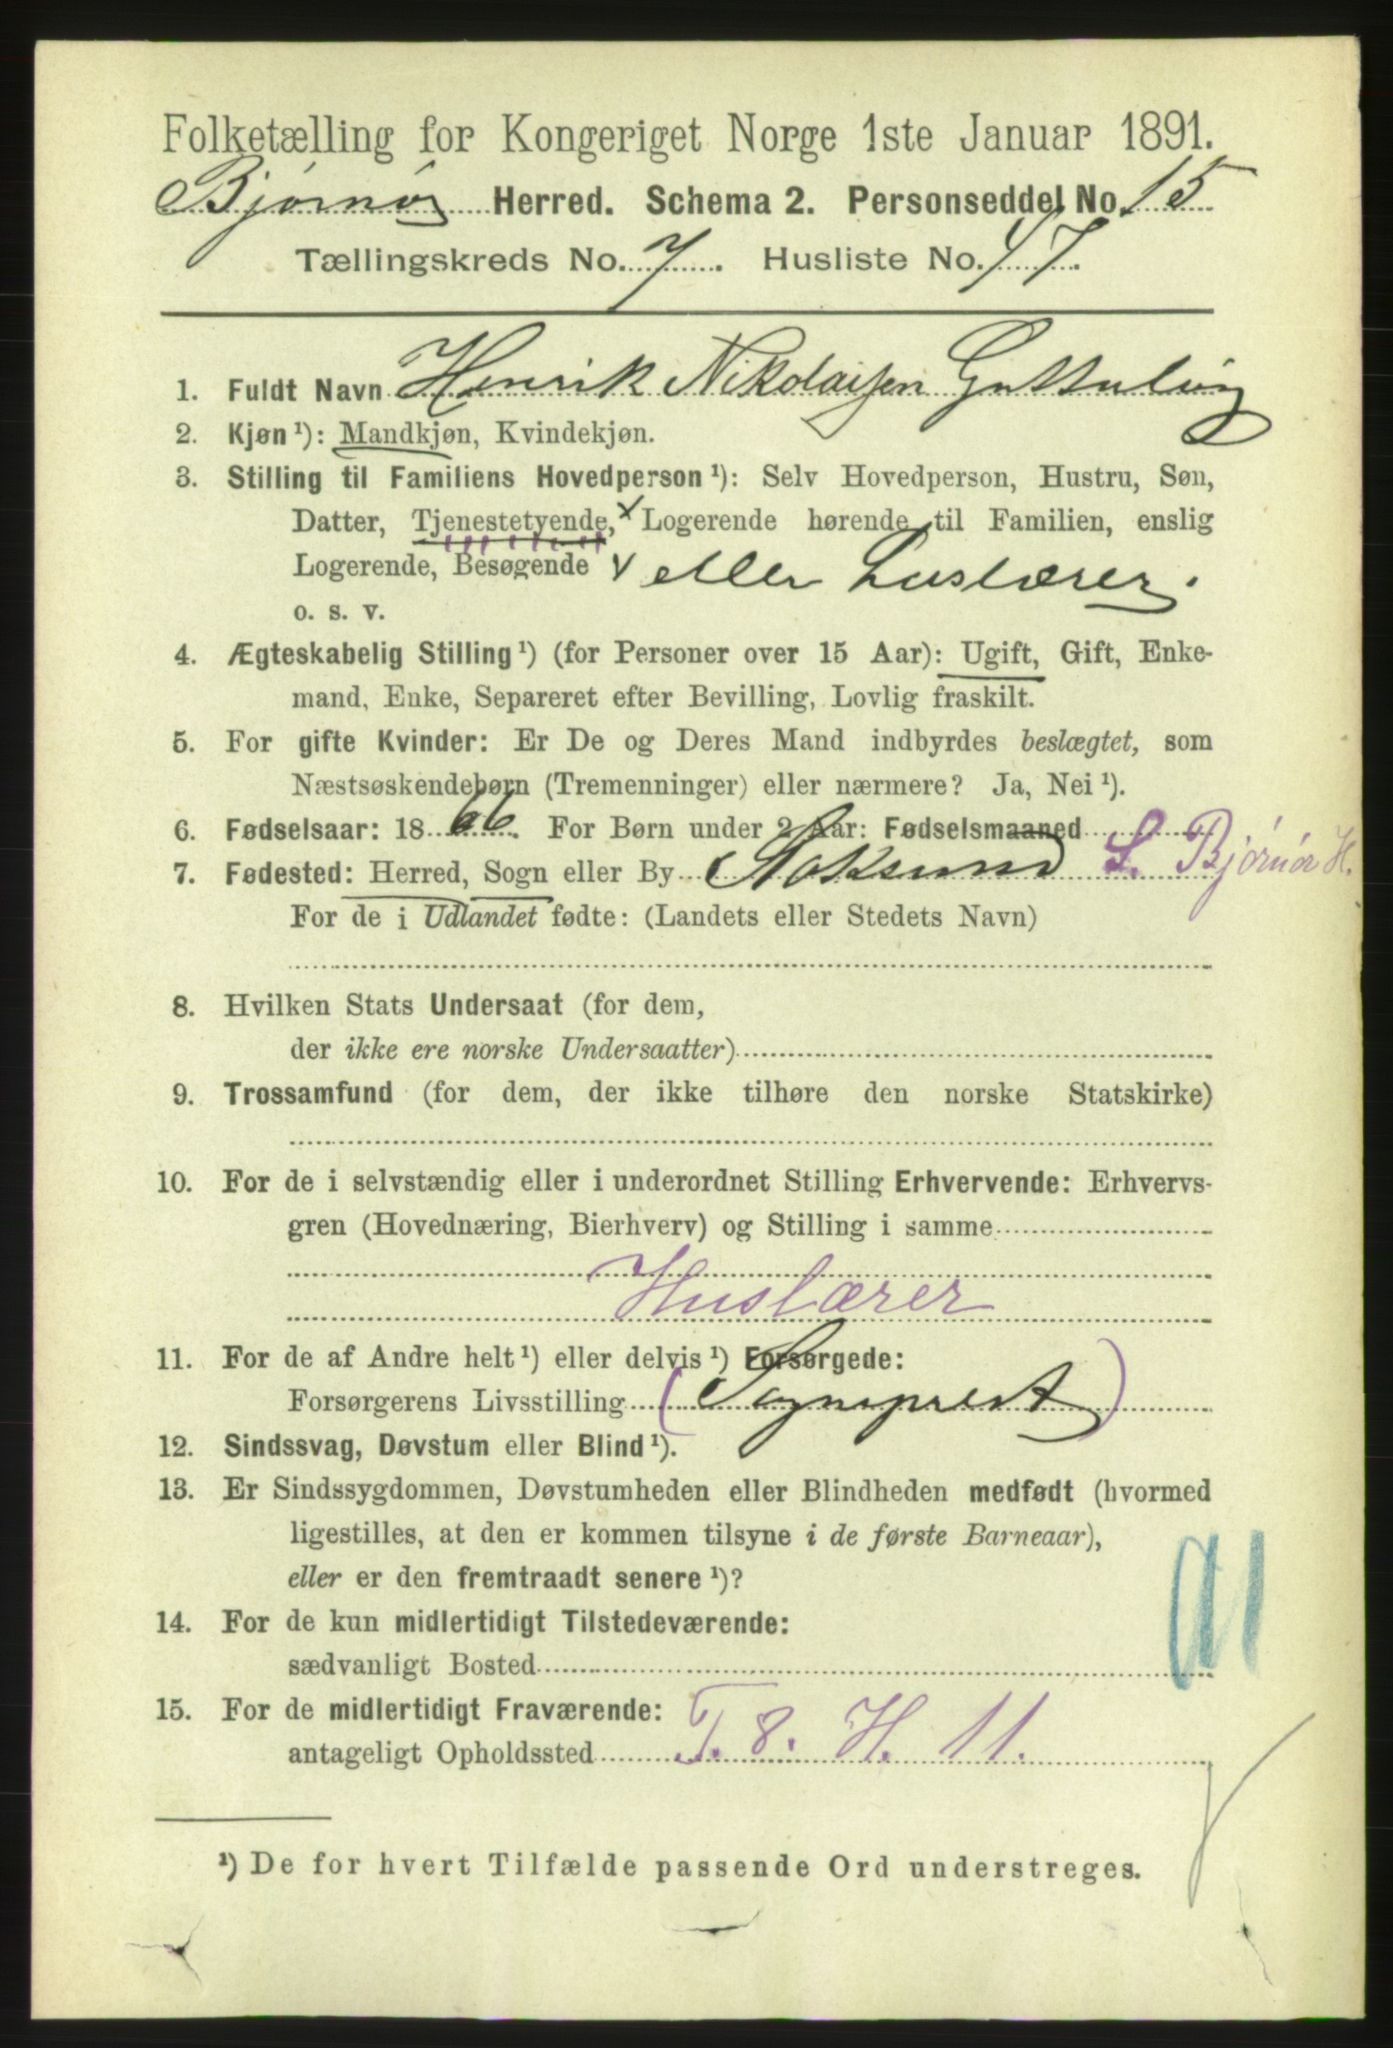 Folketælling for Kongeriget Norge 1ste Januar 1891.
Bjørnør Herred. Schema 2. Personseddel No. 15
Tællingskreds No. 7. Husliste No. 47.
1. Fuldt Navn Henrik Nikolaisen
2. Kjøn ¹): Mandkjøn, Kvindekjøn.
3. Stilling til Familiens Hovedperson ¹): Selv Hovedperson, Hustru, Søn,
Datter, Tjenestetyende, x Logerende hørende til Familien, enslig
Logerende, Besøgende x eller Huslærer.
o. s. v.
4. Ægteskabelig Stilling ¹) (for Personer over 15 Aar): Ugift, Gift, Enke-
mand, Enke, Separeret efter Bevilling, Lovlig fraskilt.
5. For gifte Kvinder: Er De og Deres Mand indbyrdes beslægtet, som
Næstsøskendebørn (Tremenninger) eller nærmere? Ja, Nei ¹).
6. Fødselsaar: 1866. For Børn under 2 Aar: Fødselsmaaned
7. Fødested: Herred, Sogn eller By Stoksund S. Bjørnør H.
For de i Udlandet fødte: (Landets eller Stedets Navn)
8. Hvilken Stats Undersaat (for dem,
der ikke ere norske Undersaatter)
9. Trossamfund (for dem, der ikke tilhøre den norske Statskirke)
10. For de i selvstændig eller i underordnet Stilling Erhvervende: Erhvervs-
gren (Hovednæring, Bierhverv) og Stilling i samme
Huslærer
11. For de af Andre helt ¹) eller delvis ¹) Forsørgede:
Forsørgerens Livsstilling (Sogneprest)
12. Sindssvag, Døvstum eller Blind ¹).
13. Er Sindssygdommen, Døvstumheden eller Blindheden medfødt (hvormed
ligestilles, at den er kommen tilsyne i de første Barneaar),
eller er den fremtraadt senere ¹)?
14. For de kun midlertidigt Tilstedeværende:
sædvanligt Bosted
15. For de midlertidigt Fraværende:
antageligt Opholdssted T. 8. H. 11.
¹) De for hvert Tilfælde passende Ord understreges.